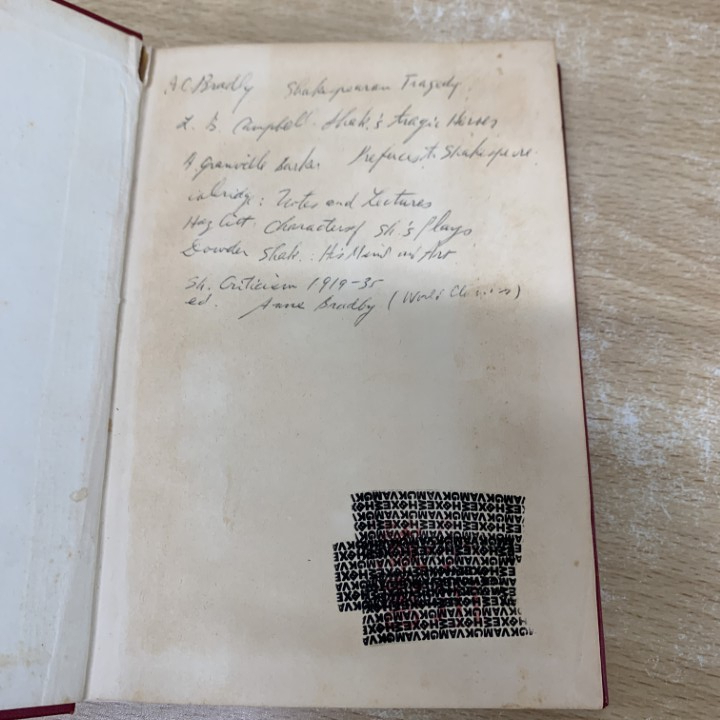 A.C. Bradly Shakespearean Tragedy.
L. B. Campbell. Shak.'s tragic Heroes
H. Granville Barker Prefaces to Shakespeare.
Coleridge: Notes and Lectures
Hazlitt: Characters of Sh's Plays
Dowden Shak.: His Mind and Art
Sh. Criticism 1919-35
ed. Anne Bradby (World Classics)